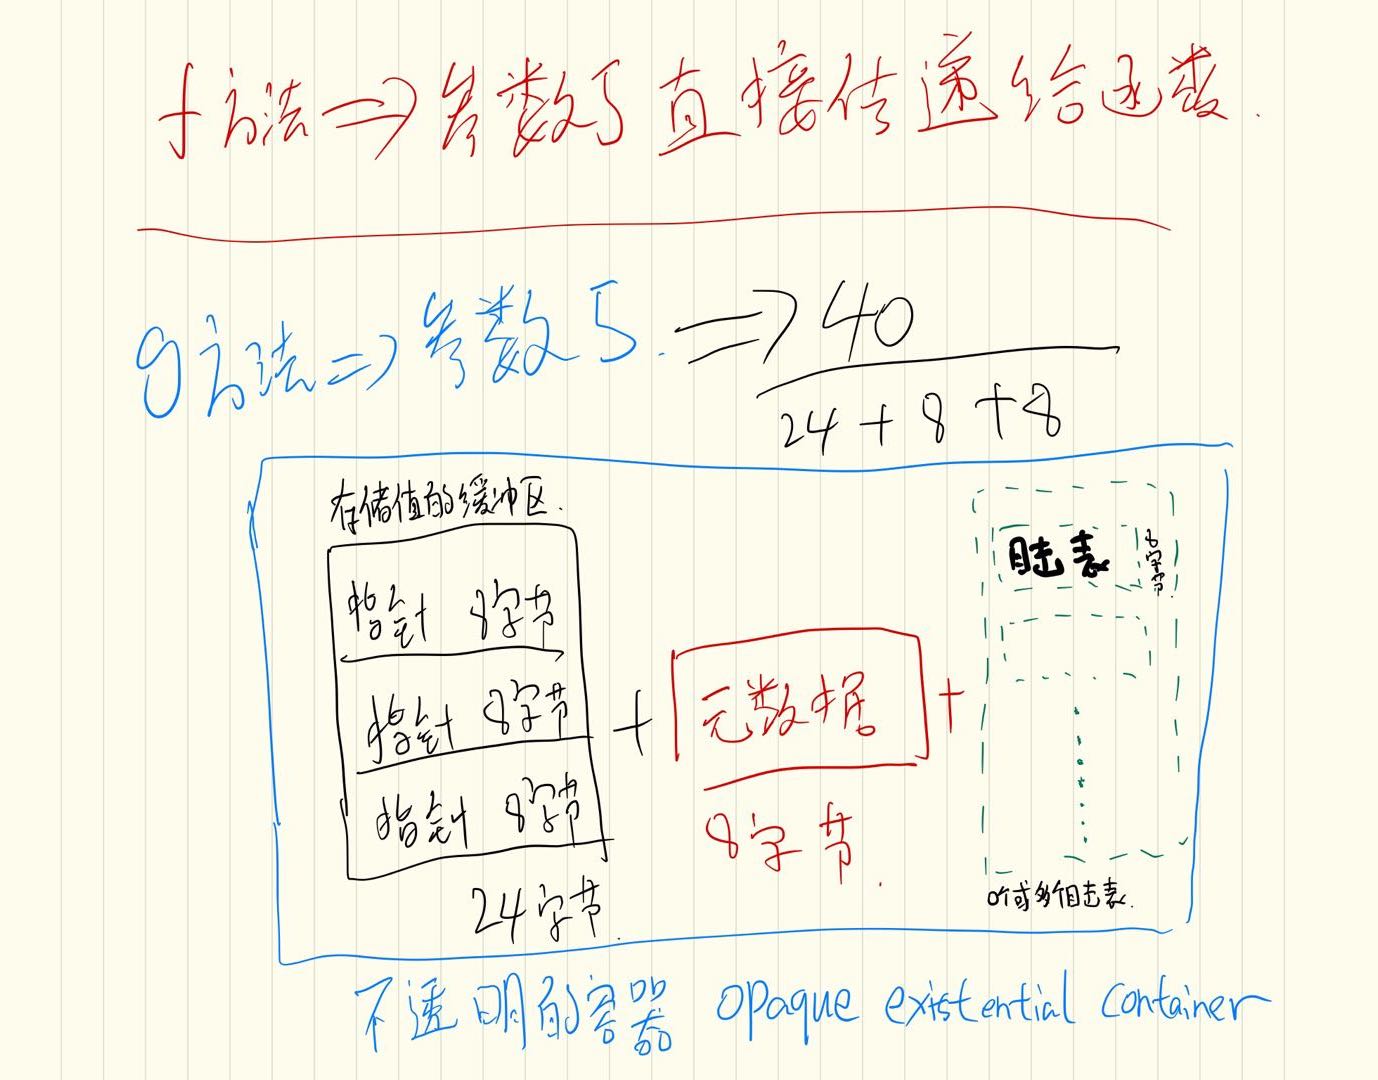 f方法=>参数5直接传递给函数.
g方法=>参数5.=>40
24+8+8
存储值的缓冲区.
指针 8字节
指针 8字节
指针 8字节
24字节.
+
元数据
8字节.
+
目击表
8字节.
0个或多个目击表.
不透明的容器 opaque existential container